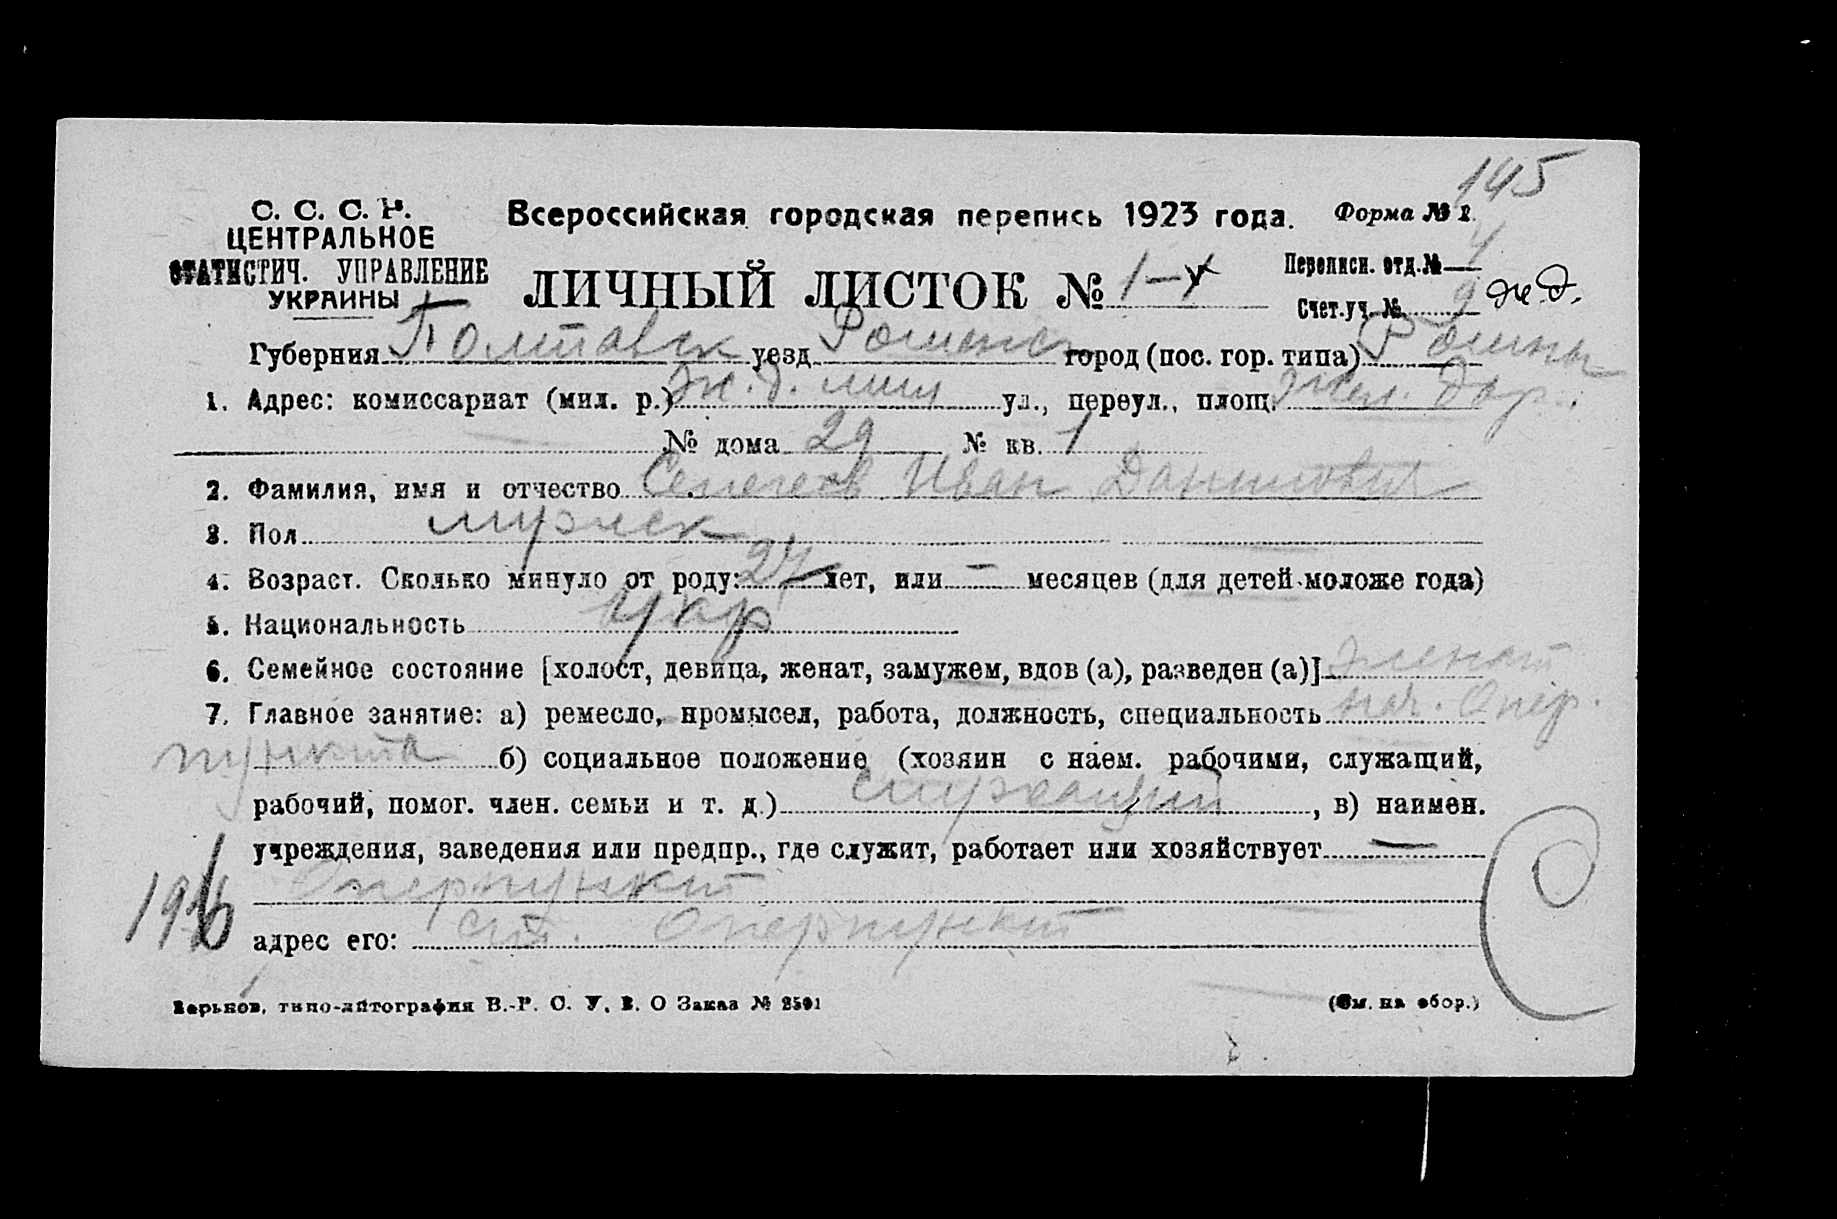 145
С. С. С. Р.
ЦЕНТРАЛЬНОЕ
СТАТИСТИЧ. УПРАВЛЕНИЕ
УКРАИНЫ
Всероссийская городская перепись 1923 года.
Форма № 1.
ЛИЧНЫЙ ЛИСТОК № 1-
Переписн. отд. № 4
Счет. уч. № 9 ж.д.
Губерния Полтавск уезд Роменск город (пос. гор. типа) Ромны
1. Адрес: комиссариат (мил. р.) Ж.д. мил ул., переул., площ. Жел. дор.
№ дома 29 № кв. 1
2. Фамилия, имя и отчество Иван Данилович
3. Пол мужск
4. Возраст. Сколько минуло от роду: 27 лет, или — месяцев (для детей моложе года)
5. Национальность Укр
6. Семейное состояние [холост, девица, женат, замужем, вдов (а), разведен (а)] женат
7. Главное занятие: а) ремесло, промысел, работа, должность, специальность нач. Опер.
пункта б) социальное положение (хозяин с наем. рабочими, служащий,
рабочий, помог. член. семьи и т. д.) служащий, в) наимен.
учреждения, заведения или предпр., где служит, работает или хозяйствует —
Оперпункт
адрес его: ст. Оперпункт
Харьков, типо-литография В.-Р. С. У. В. О Заказ № 2591
(См. на обор.)